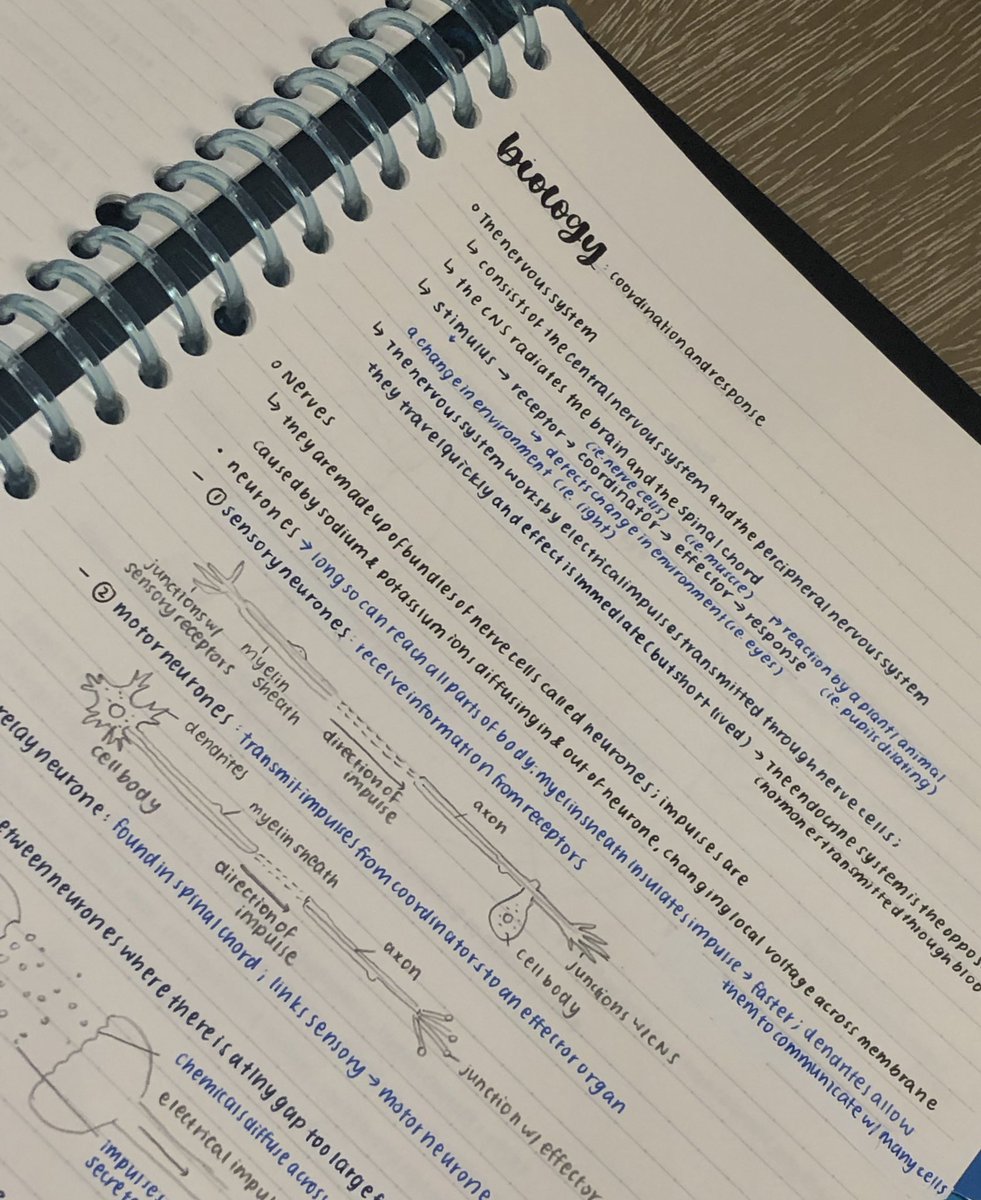 biology : coordination and response
o The nervous system
↳ consists of the central nervous system and the percipheral nervous system
↳ the CNS radiates the brain and the spinal chord
(ie. nerve cells) (ie. muscle) ↱ reaction by a plant/animal
↳ stimulus → receptor → coordinator → effector → response (ie. pupils dilating)
↳ detects change in environment (ie. eyes)
a change in environment (ie. light)
↳ The nervous system works by electrical impulses transmitted through nerve cells;
they travel quickly and effect is immediate (but short lived) → The endocrine system is the
(hormones transmitted through
o Nerves
↳ they are made up of bundles of nerve cells called neurones; impulses are
caused by sodium & potassium ions diffusing in & out of neurone, changing local voltage across membrane
• neurones → long so can reach all parts of body. myelin sheath insulates impulse → faster; denantes allow
them to communicate w/ many cells
- ① sensory neurones : receive information from receptors
junctions w/
sensory receptors
myelin
sheath
direction of
impulse
axon
cell body
junctions w/ CNS
- ② motor neurones : transmit impulses from coordinators to an effector organ
denantes
cell body
myelin sheath
direction of
impulse
axon
junction w/ effector
relay neurone : found in spinal chord ; links sensory → motor neurone
between neurones where there is a tiny gap too large
chemicals diffuse across
electrical
impulses